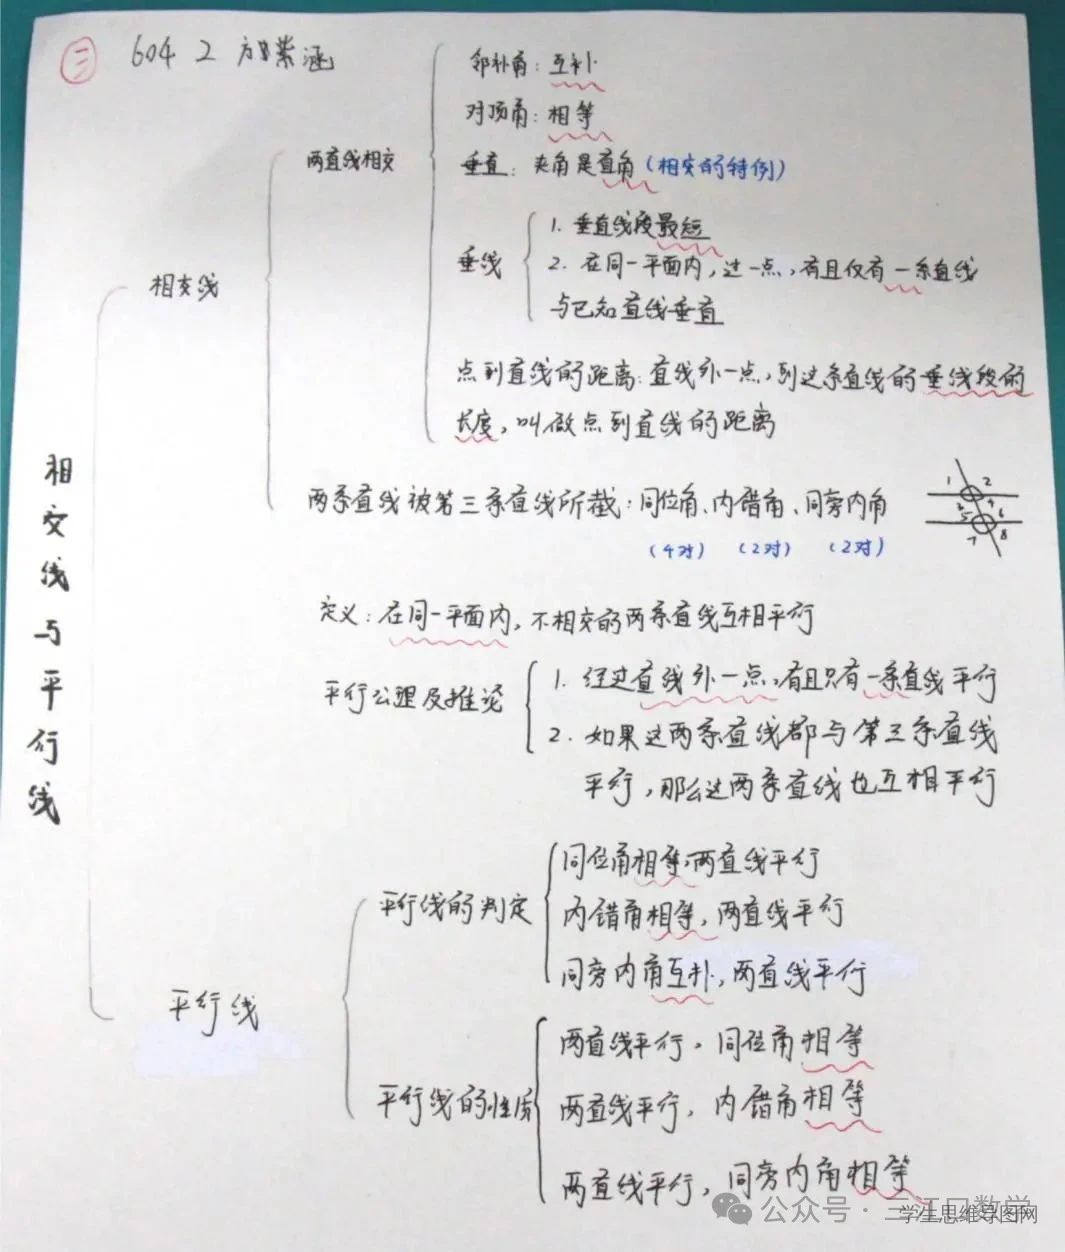 三
604 2
邻补角：互补
对顶角：相等
两直线相交
垂直：夹角是直角（相交的特例）
1. 垂直线段最短
垂线
2. 在同一平面内，过一点，有且仅有一条直线
与已知直线垂直
相交线
点到直线的距离：直线外一点，到这条直线的垂线段的
长度，叫做点到直线的距离
相交线与平行线
两条直线被第三条直线所截：同位角、内错角、同旁内角
（4对） （2对） （2对）
1 2
3 4
5 6
7 8
定义：在同一平面内，不相交的两条直线互相平行
平行公理及推论
1. 经过直线外一点，有且只有一条直线平行
2. 如果这两条直线都与第三条直线
平行，那么这两条直线也互相平行
同位角相等，两直线平行
平行线的判定
内错角相等，两直线平行
同旁内角互补，两直线平行
平行线
两直线平行，同位角相等
平行线的性质
两直线平行，内错角相等
两直线平行，同旁内角相等
公众号·三江口数学
学生思维导图网